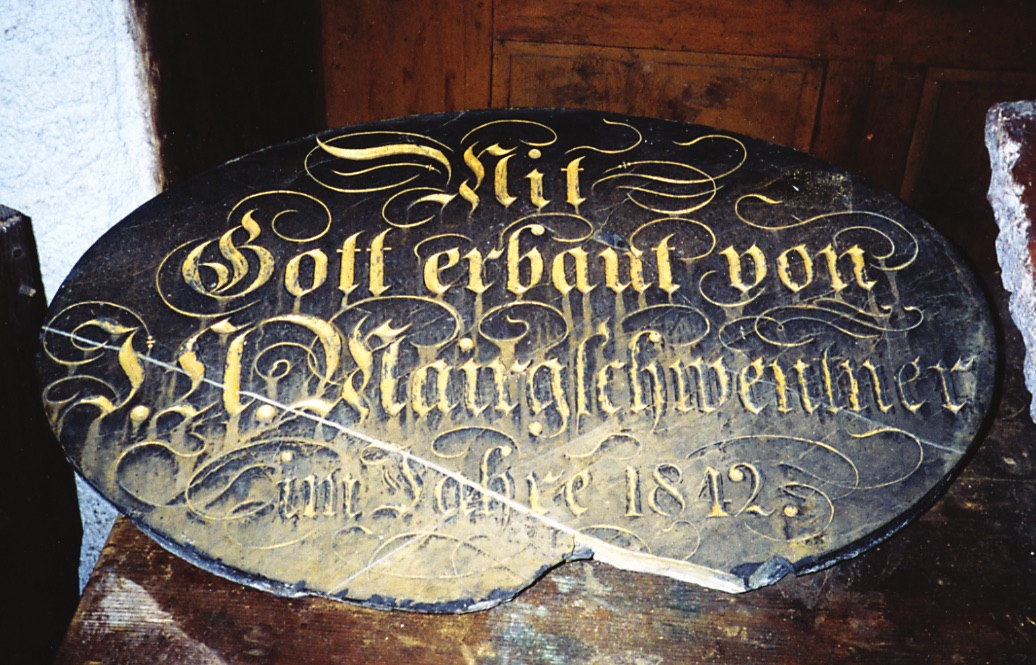 Mit
Gott erbaut von
J. N. Mairgschwentner
im Jahre 1842.